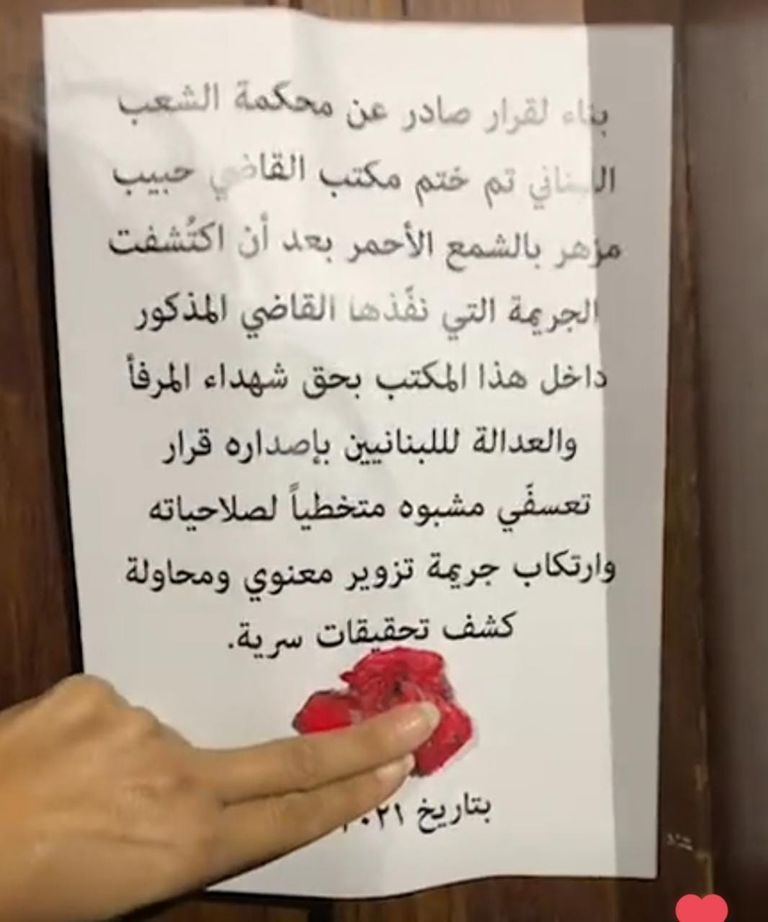 بناء لقرار صادر عن محكمة الشعب
اللبناني تم ختم مكتب القاضي حبيب
مزهر بالشمع الأحمر بعد أن اكتُشفت
الجريمة التي نفّذها القاضي المذكور
داخل هذا المكتب بحق شهداء المرفأ
والعدالة لللبنانيين بإصداره قرار
تعسفّي مشبوه متخطياً لصلاحياته
وارتكاب جريمة تزوير معنوي ومحاولة
كشف تحقيقات سرية.
بتاريخ